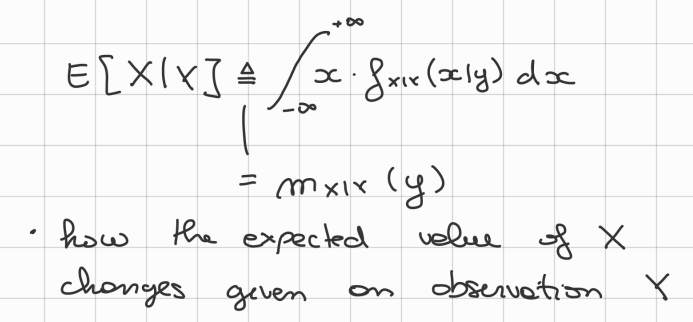 E[X|Y] ≜ ∫_{-∞}^{+∞} x · f_{X|Y}(x|y) dx
= m_{X|Y}(y)
· how the expected value of X
changes given an observation Y